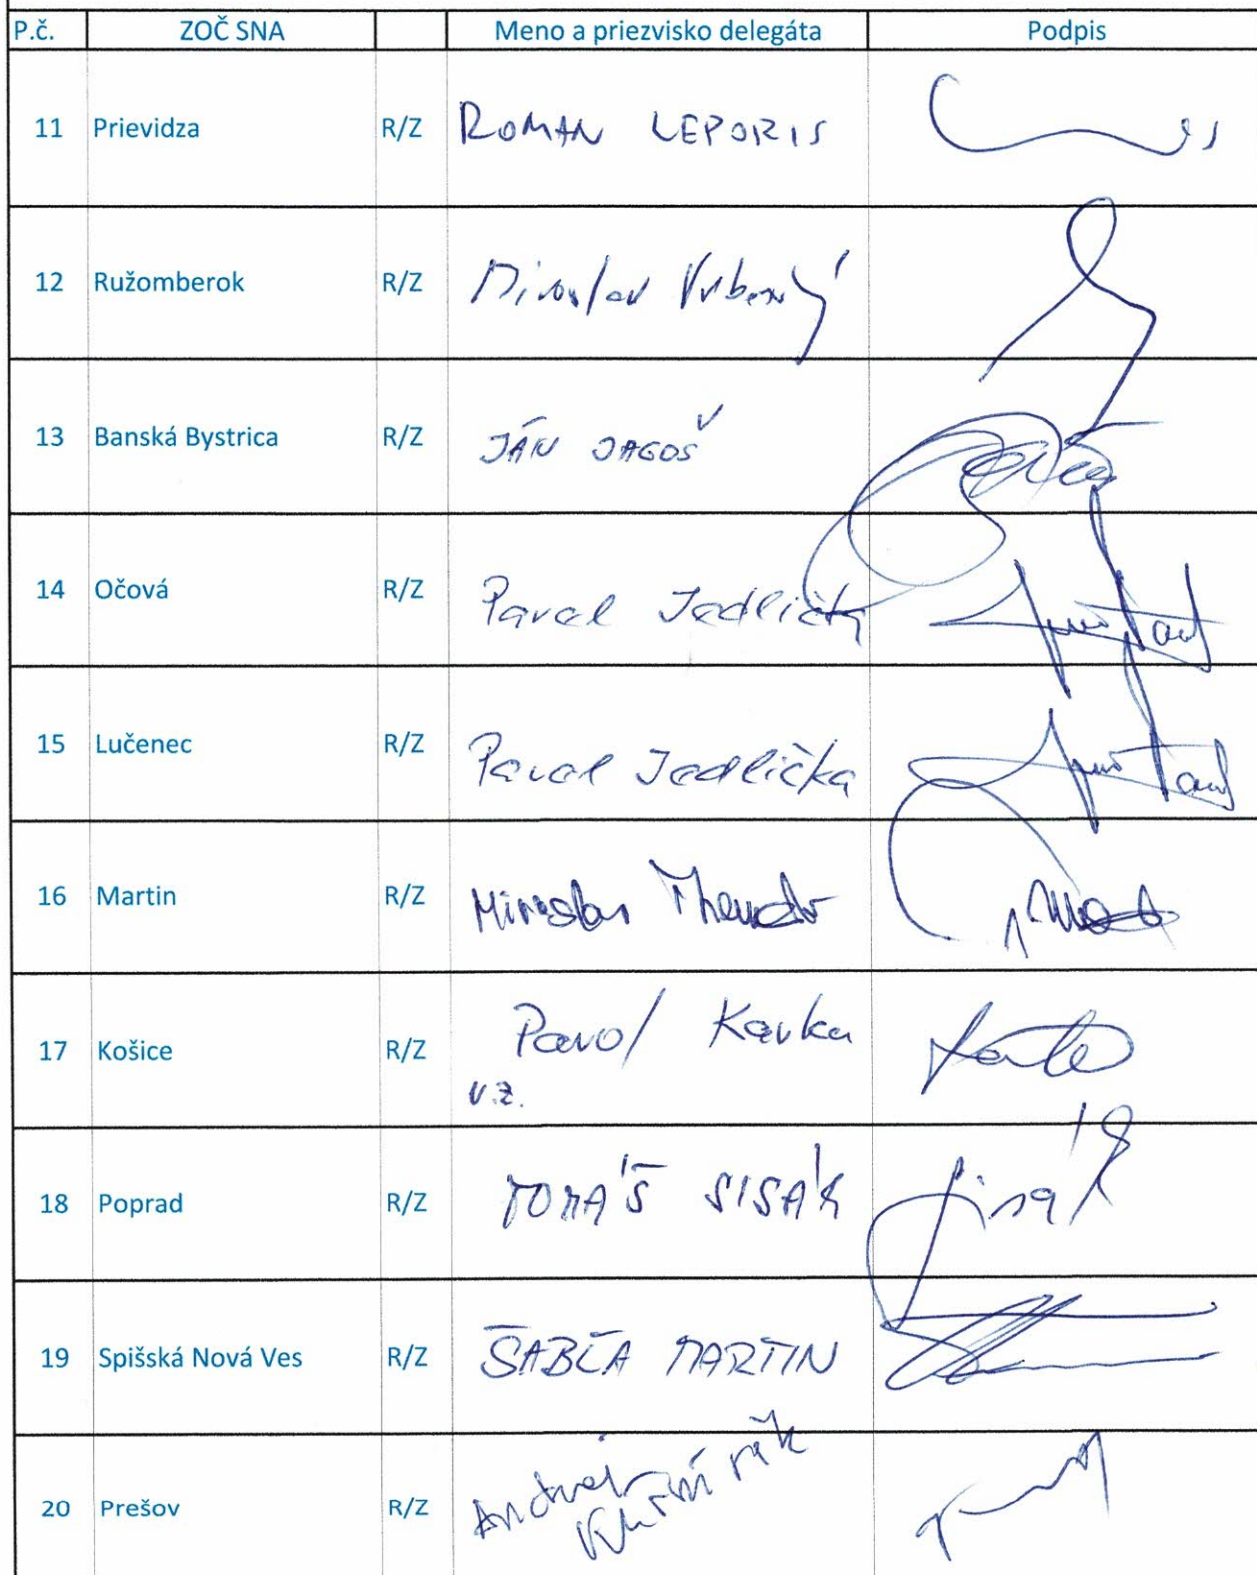 P.č. ZOČ SNA Meno a priezvisko delegáta Podpis
11 Prievidza R/Z ROMAN LEPORIS
12 Ružomberok R/Z Miroslav Vrbený
13 Banská Bystrica R/Z JÁN JAGOŠ
14 Očová R/Z Pavel Jedlička
15 Lučenec R/Z Pavel Jedlička
16 Martin R/Z Miroslav
17 Košice R/Z Pavol Kavka
v.z.
18 Poprad R/Z TOMÁŠ SISÁK Sisák
19 Spišská Nová Ves R/Z ŠABĽA MARTIN
20 Prešov R/Z Andrej